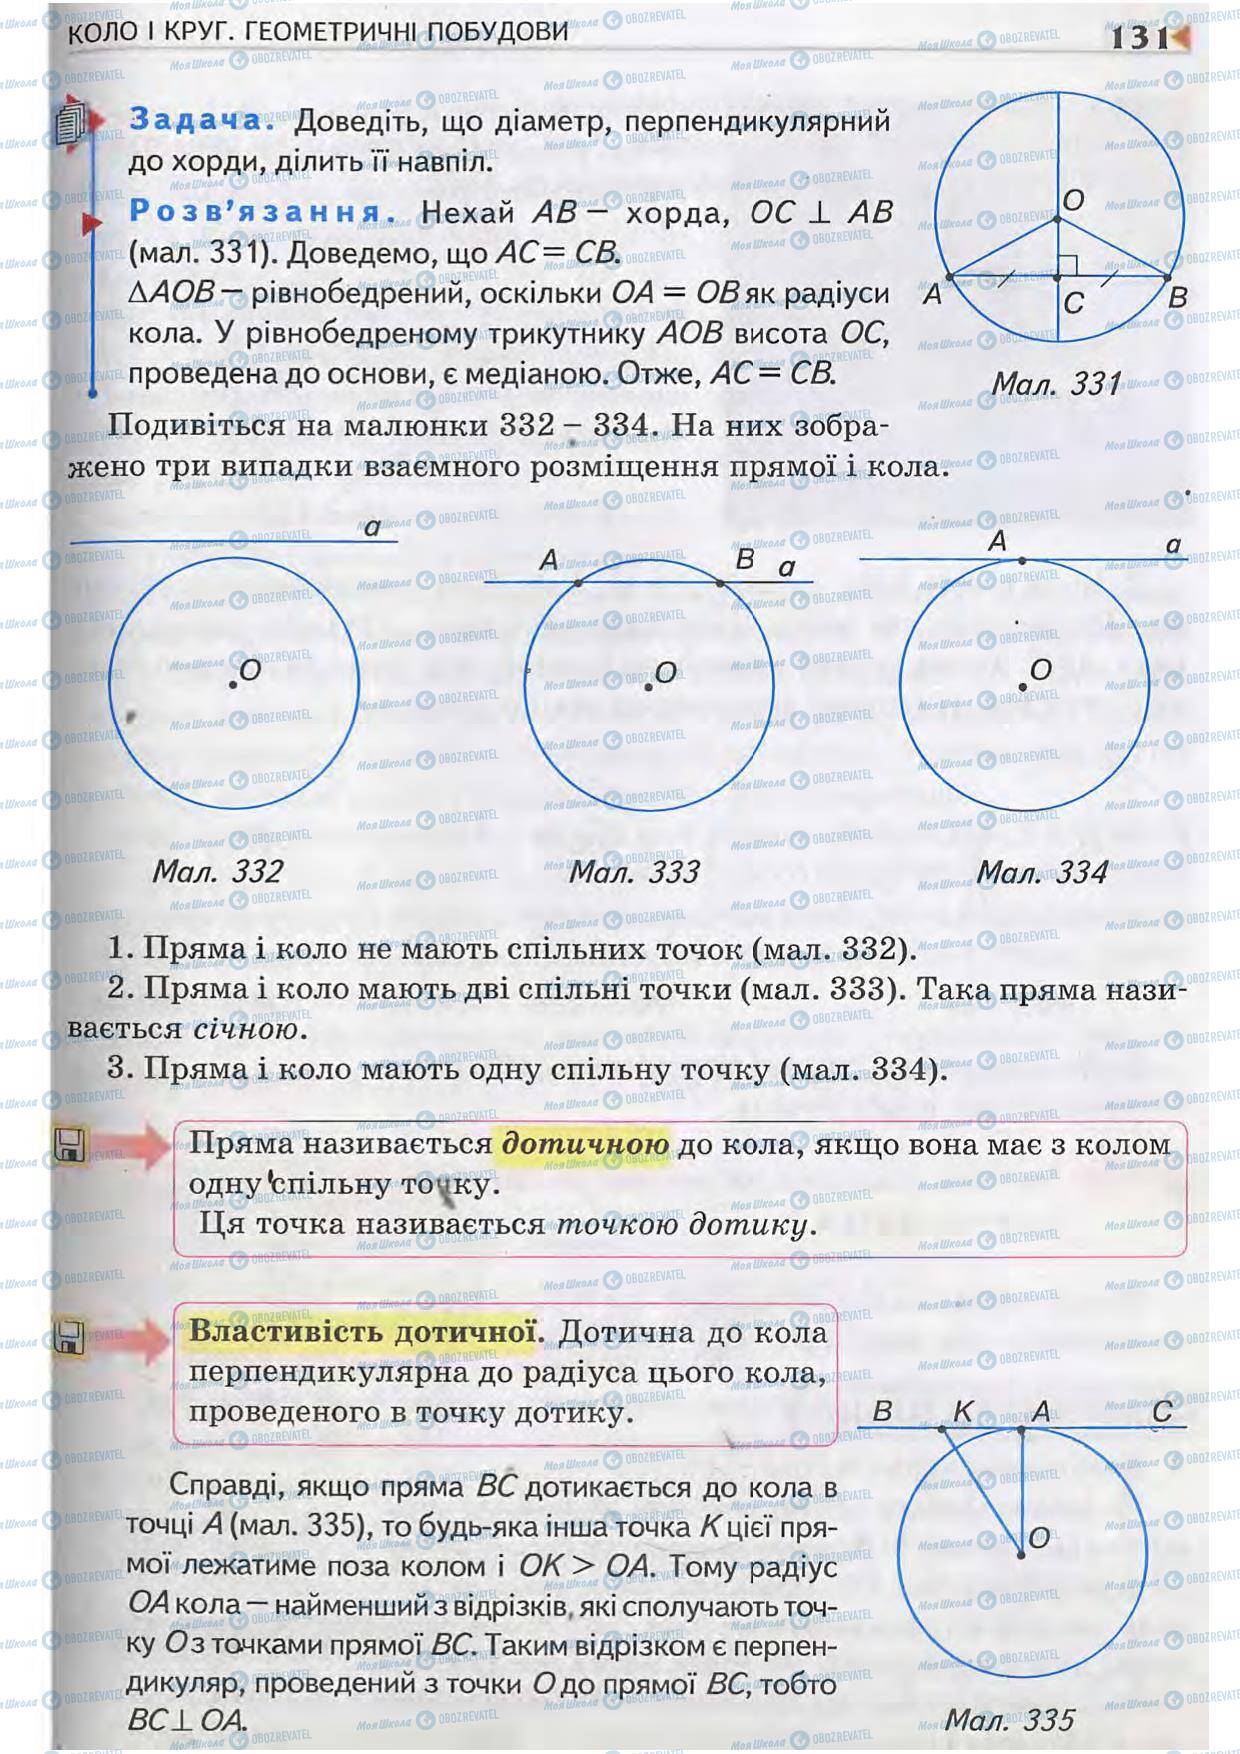 КОЛО І КРУГ. ГЕОМЕТРИЧНІ ПОБУДОВИ
131
Задача. Доведіть, що діаметр, перпендикулярний
до хорди, ділить її навпіл.
Розв’язання. Нехай AB – хорда, OC ⊥ AB
(мал. 331). Доведемо, що AC = CB.
ΔAOB – рівнобедрений, оскільки OA = OB як радіуси
кола. У рівнобедреному трикутнику AOB висота OC,
проведена до основи, є медіаною. Отже, AC = CB.
O
A
C
B
Мал. 331
Подивіться на малюнки 332 – 334. На них зобра-
жено три випадки взаємного розміщення прямої і кола.
a
O
Мал. 332
A B a
O
Мал. 333
A a
O
Мал. 334
1. Пряма і коло не мають спільних точок (мал. 332).
2. Пряма і коло мають дві спільні точки (мал. 333). Така пряма нази-
вається січною.
3. Пряма і коло мають одну спільну точку (мал. 334).
Пряма називається дотичною до кола, якщо вона має з колом
одну спільну точку.
Ця точка називається точкою дотику.
Властивість дотичної. Дотична до кола
перпендикулярна до радіуса цього кола,
проведеного в точку дотику.
Справді, якщо пряма BC дотикається до кола в
точці A (мал. 335), то будь-яка інша точка K цієї пря-
мої лежатиме поза колом і OK > OA. Тому радіус
OA кола – найменший з відрізків, які сполучають точ-
ку O з точками прямої BC. Таким відрізком є перпен-
дикуляр, проведений з точки O до прямої BC, тобто
BC ⊥ OA.
B K A C
O
Мал. 335
МояШкола OBOZREVATEL